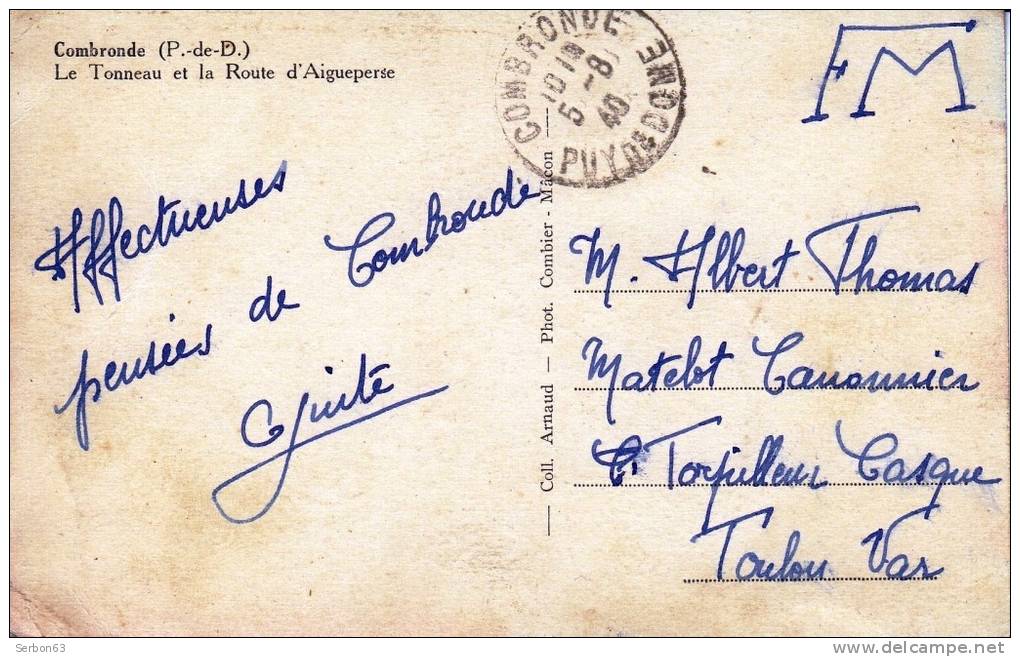 Combronde (P.-de-D.)
Le Tonneau et la Route d'Aigueperse
COMBRONDE
PUY DE DOME
10 10
5 -8
40
FM
Affectueuses
pensées de Combronde
Guite
Coll. Arnaud — Phot. Combier - Mâcon
M. Albert Thomas
Matelot Canonnier
C. Torpilleur Casque
Toulon Var
Serbon63
delcampe.net